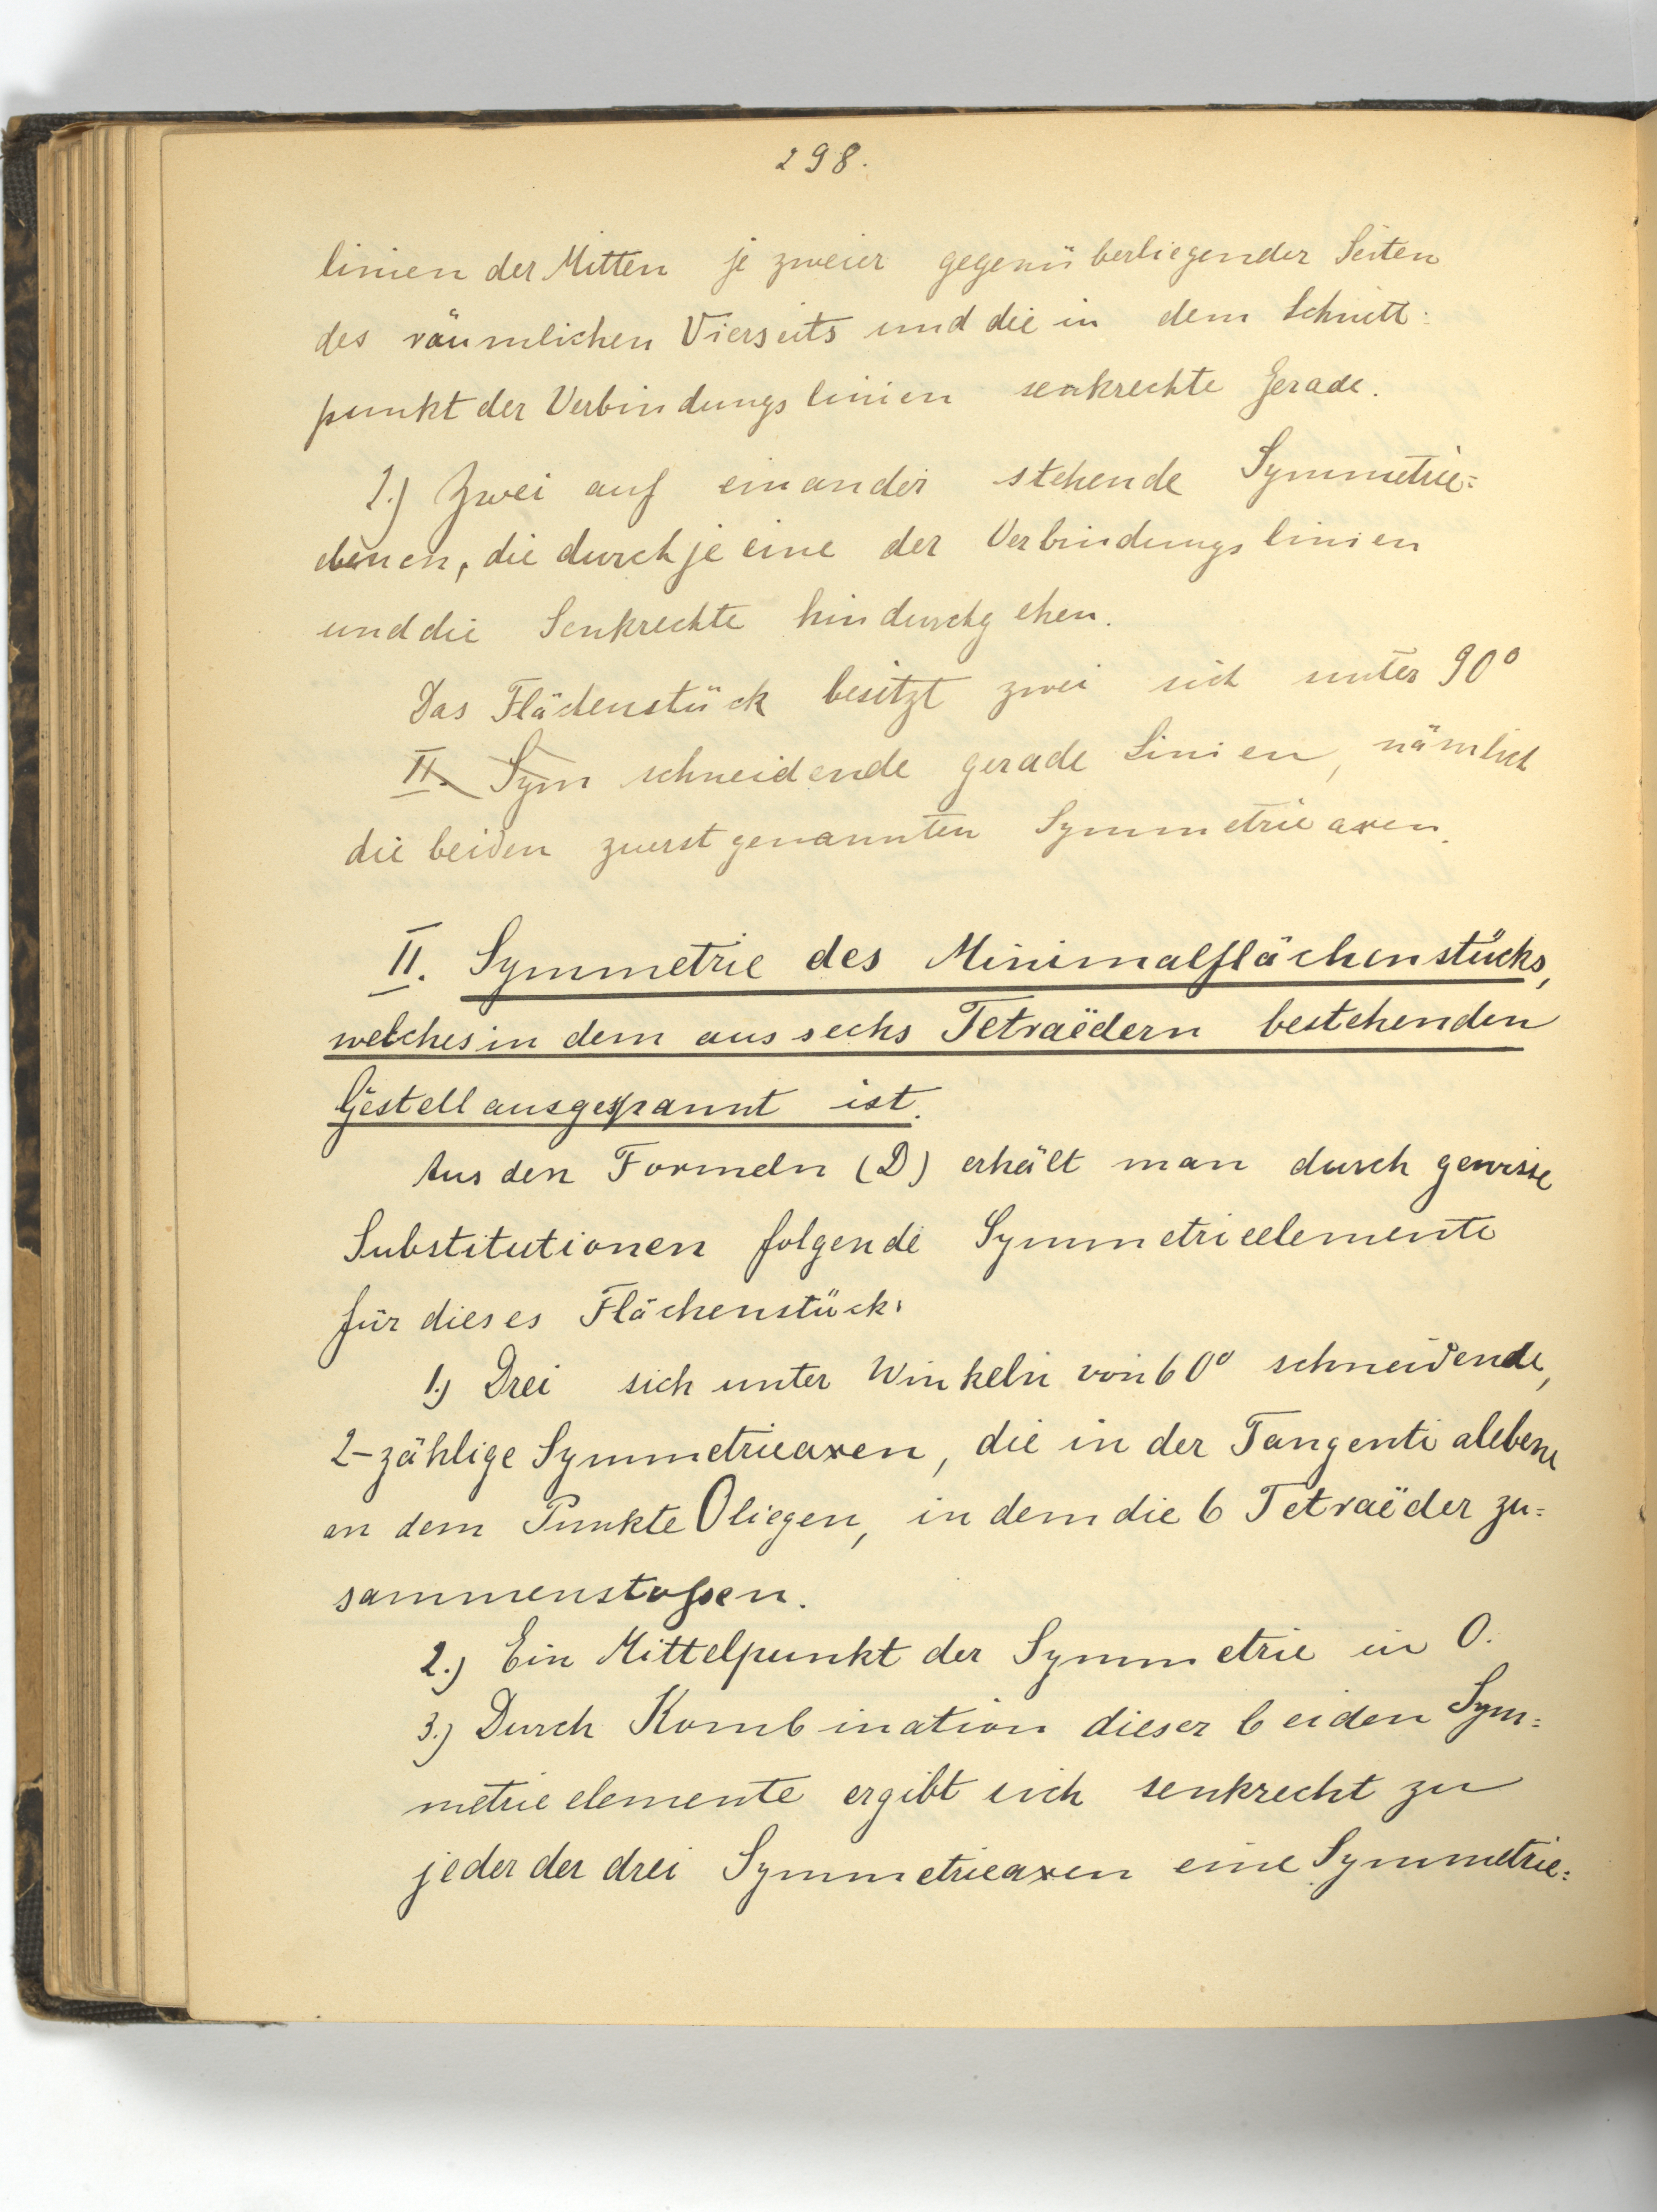 298.
linien der Mitten je zweier gegenüberliegender Seiten
des räumlichen Vierseits und die in dem Schnitt-
punkt der Verbindungslinien senkrechte Gerade.
2.) Zwei auf einander stehende Symmetrie=
ebenen, die durch je eine der Verbindungslinien
und die Senkrechte hindurchgehen.
Das Flächenstück besitzt zwei sich unter 90°
II. Sym schneidende gerade Linien, nämlich
die beiden zuerst genannten Symmetrieaxen.
II. Symmetrie des Minimalflächenstücks,
welches in dem aus sechs Tetraëdern bestehenden
Gestell ausgespannt ist.
Aus den Formeln (D) erhält man durch gewisse
Substitutionen folgende Symmetrieelemente
für dieses Flächenstück:
1.) Drei sich unter Winkeln von 60° schneidende,
2-zählige Symmetrieaxen, die in der Tangentialebene
an dem Punkte O liegen, in dem die 6 Tetraëder zu=
sammenstoßen.
2.) Ein Mittelpunkt der Symmetrie in O.
3.) Durch Kombination dieser beiden Sym=
metrieelemente ergibt sich senkrecht zu
jeder der drei Symmetrieaxen eine Symmetrie=